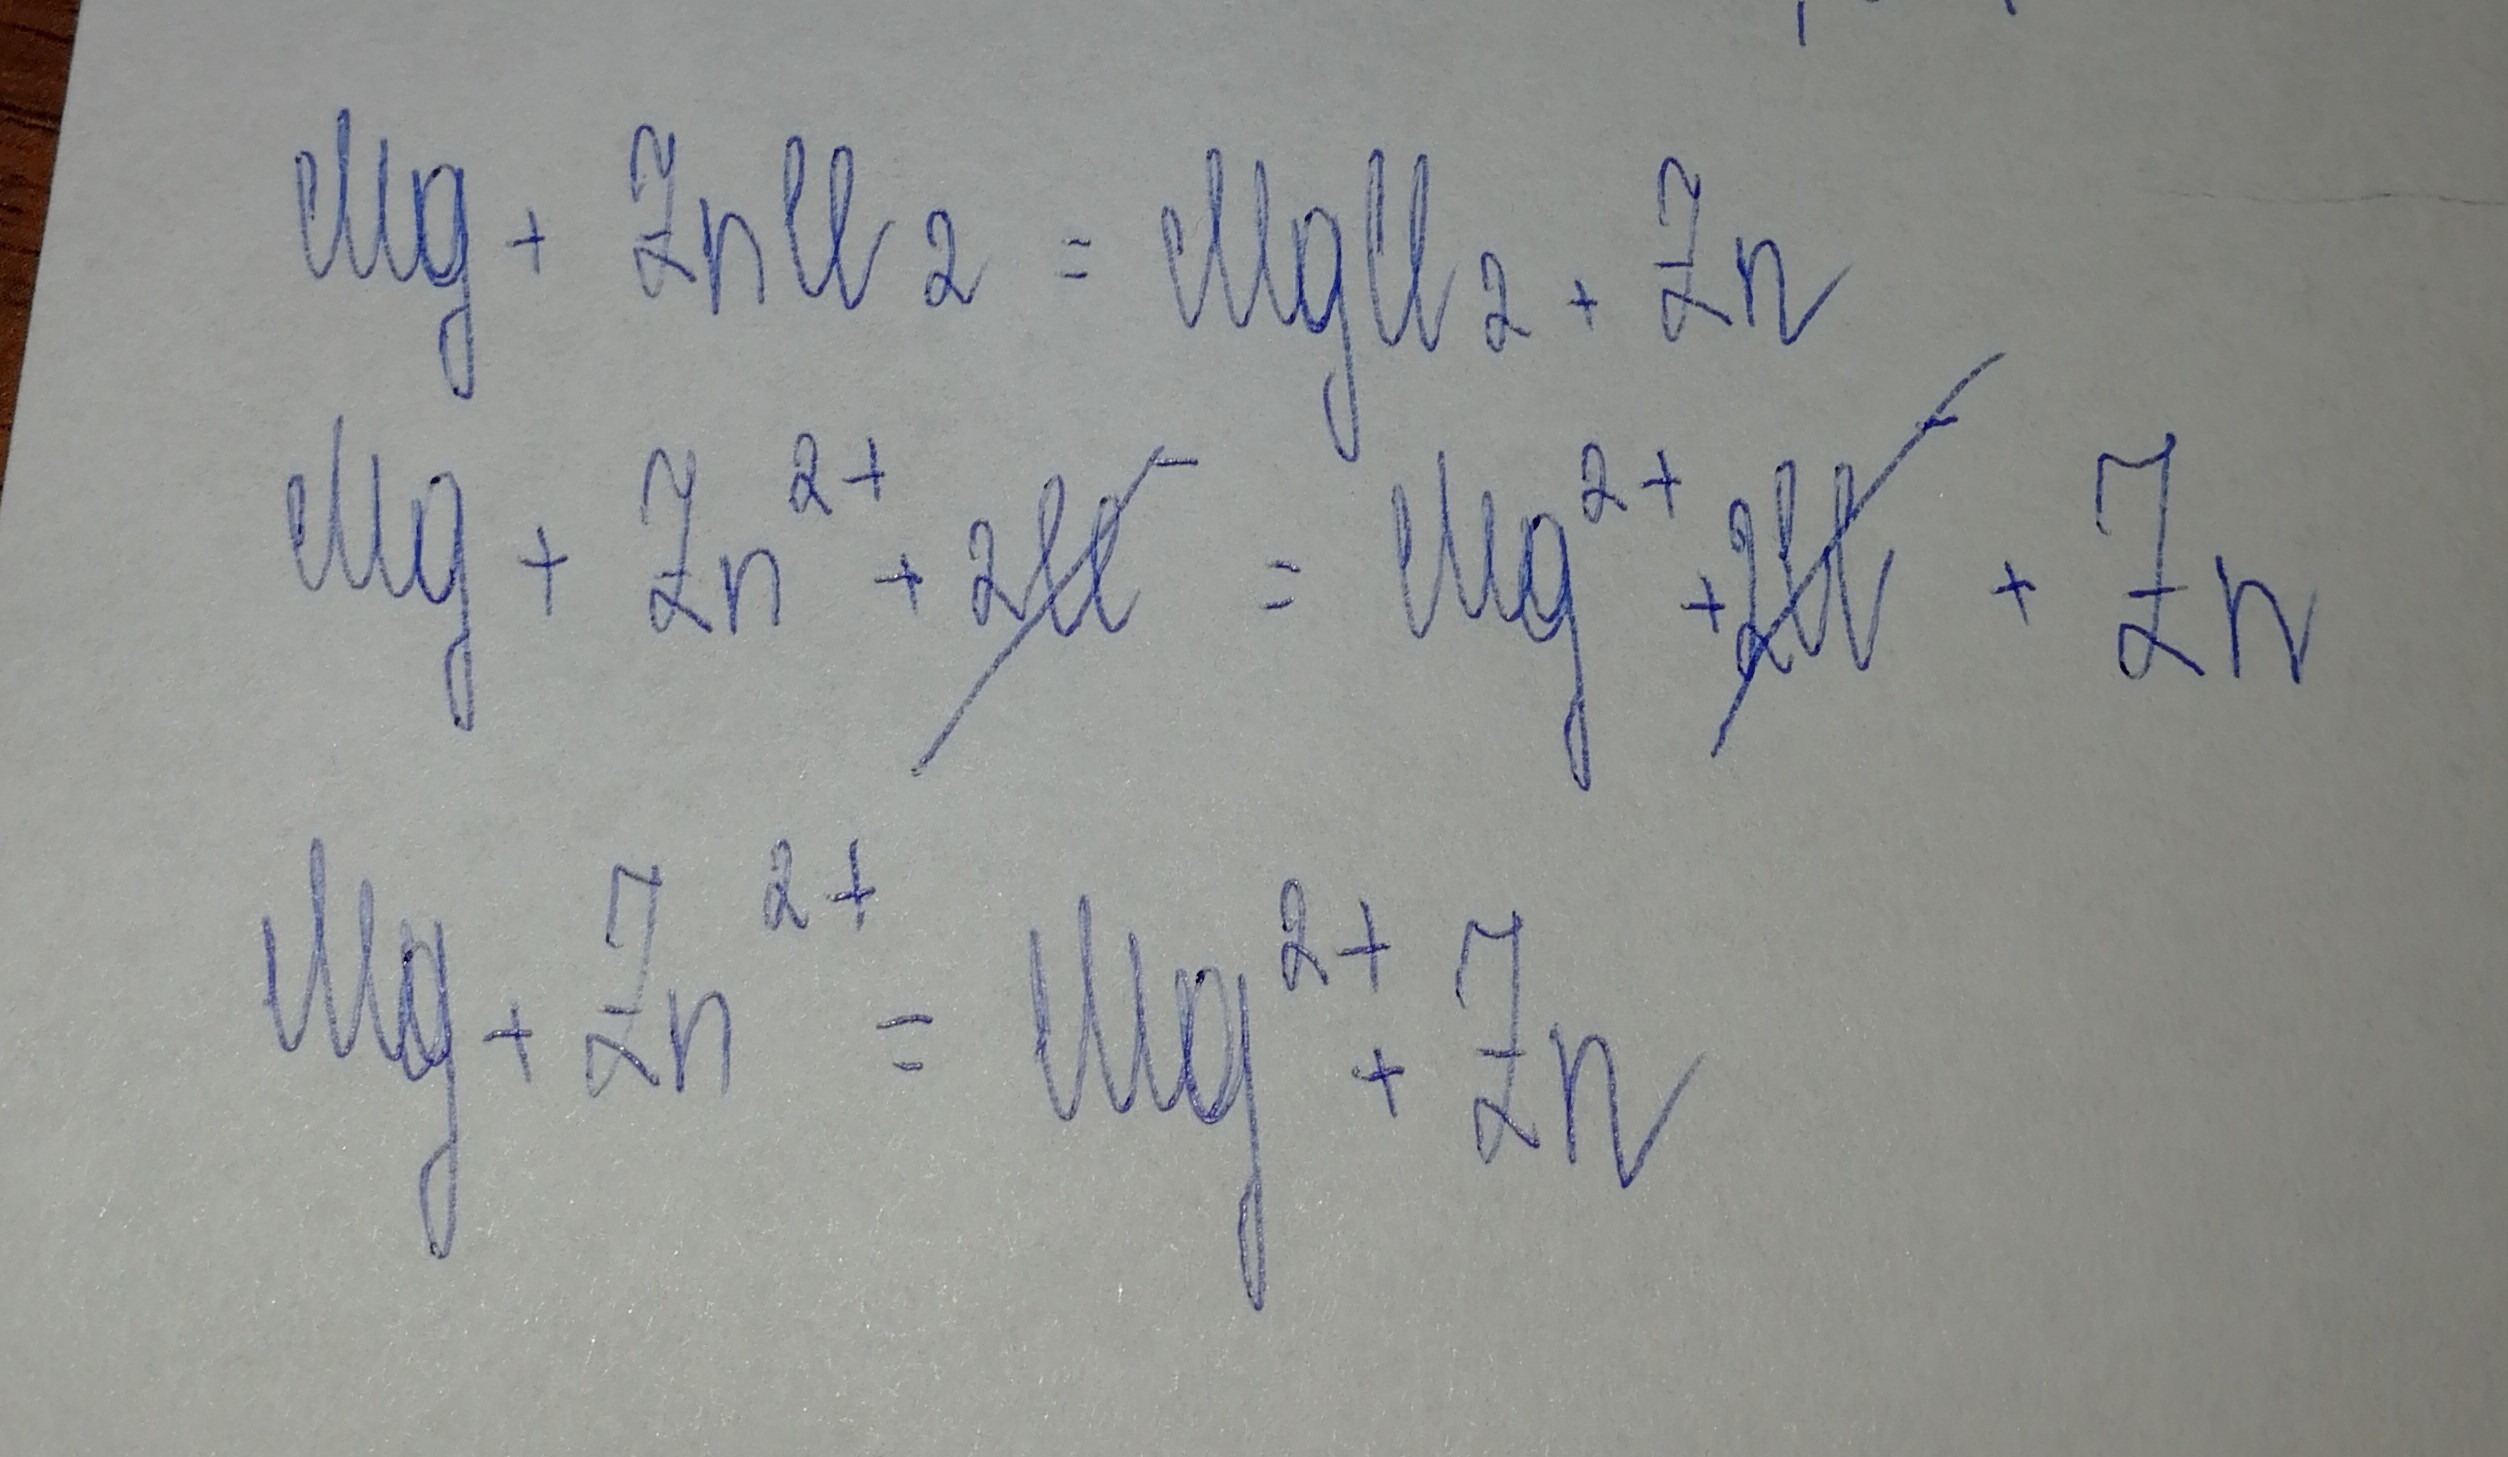 Mg + ZnCl₂ = MgCl₂ + Zn
Mg + Zn²⁺ + 2Cl⁻ = Mg²⁺ + 2Cl⁻ + Zn
Mg + Zn²⁺ = Mg²⁺ + Zn